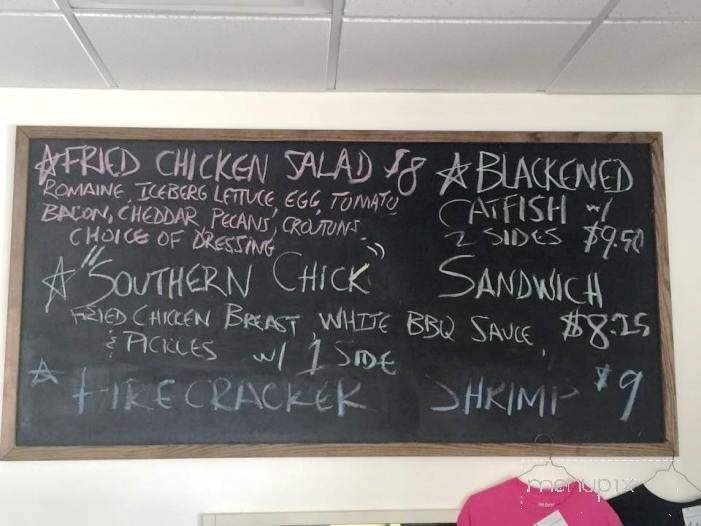 ☆ FRIED CHICKEN SALAD $8
ROMAINE, ICEBERG LETTUCE, EGG, TOMATO
BACON, CHEDDAR, PECANS, CROUTONS
CHOICE OF DRESSING
☆ BLACKENED
CATFISH w/
2 SIDES $9.50
☆ "SOUTHERN CHICK" SANDWICH
FRIED CHICKEN BREAST, WHITE BBQ SAUCE, $8.25
& PICKLES w/ 1 SIDE
☆ FIRECRACKER SHRIMP $9
menupix